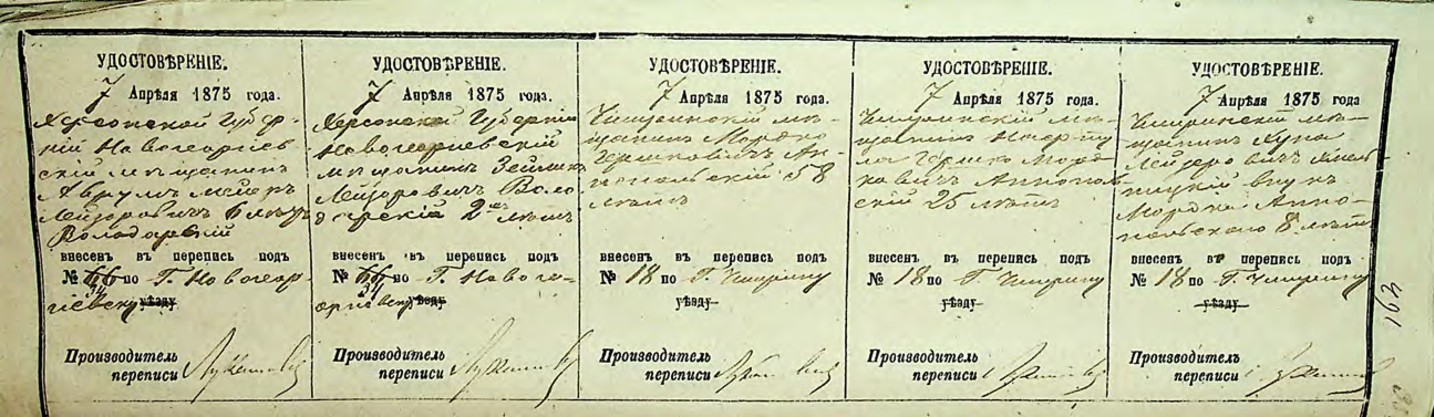 УДОСТОВѢРЕНІЕ.
7 Апрѣля 1875 года.
Херсонской Губер-
ніи Новогеоргіев
скій мѣщанинъ
Аврумъ Мейеръ
Лейзоровичъ 6 лѣтъ
Володарскій
внесенъ въ перепись подъ
№ по Г. Новогеор
гіевску уѣзду
Производитель
переписи
УДОСТОВѢРЕНІЕ.
7 Апрѣля 1875 года.
Херсонской Губерніи
Новогеоргіевскій
мѣщанинъ
Лейзоровичъ Воло
дарскій 2 лѣтъ
внесенъ въ перепись подъ
№ по Г. Новоге-
оргіевску уѣзду
Производитель
переписи
УДОСТОВѢРЕНІЕ.
7 Апрѣля 1875 года.
Чигиринскій мѣ-
щанинъ Мордко
Гершковичъ Ан-
нопольскій 58
лѣтъ
внесенъ въ перепись подъ
№ 18 по Г. Чигирину
уѣзду
Производитель
переписи
УДОСТОВѢРЕНІЕ.
7 Апрѣля 1875 года.
Чигиринскій мѣ-
щанинъ
Гершко Морд-
ковичъ Аннополь
скій 25 лѣтъ
внесенъ въ перепись подъ
№ 18 по Г. Чигирину
уѣзду
Производитель
переписи
УДОСТОВѢРЕНІЕ.
7 Апрѣля 1875 года
Чигиринскій мѣ-
щанинъ
Лейзеровичъ Хмель-
ницкій внукъ
Мордки Анно-
польского 8 лѣтъ
внесенъ въ перепись подъ
№ 18 по Г. Чигирину
уѣзду
Производитель
переписи